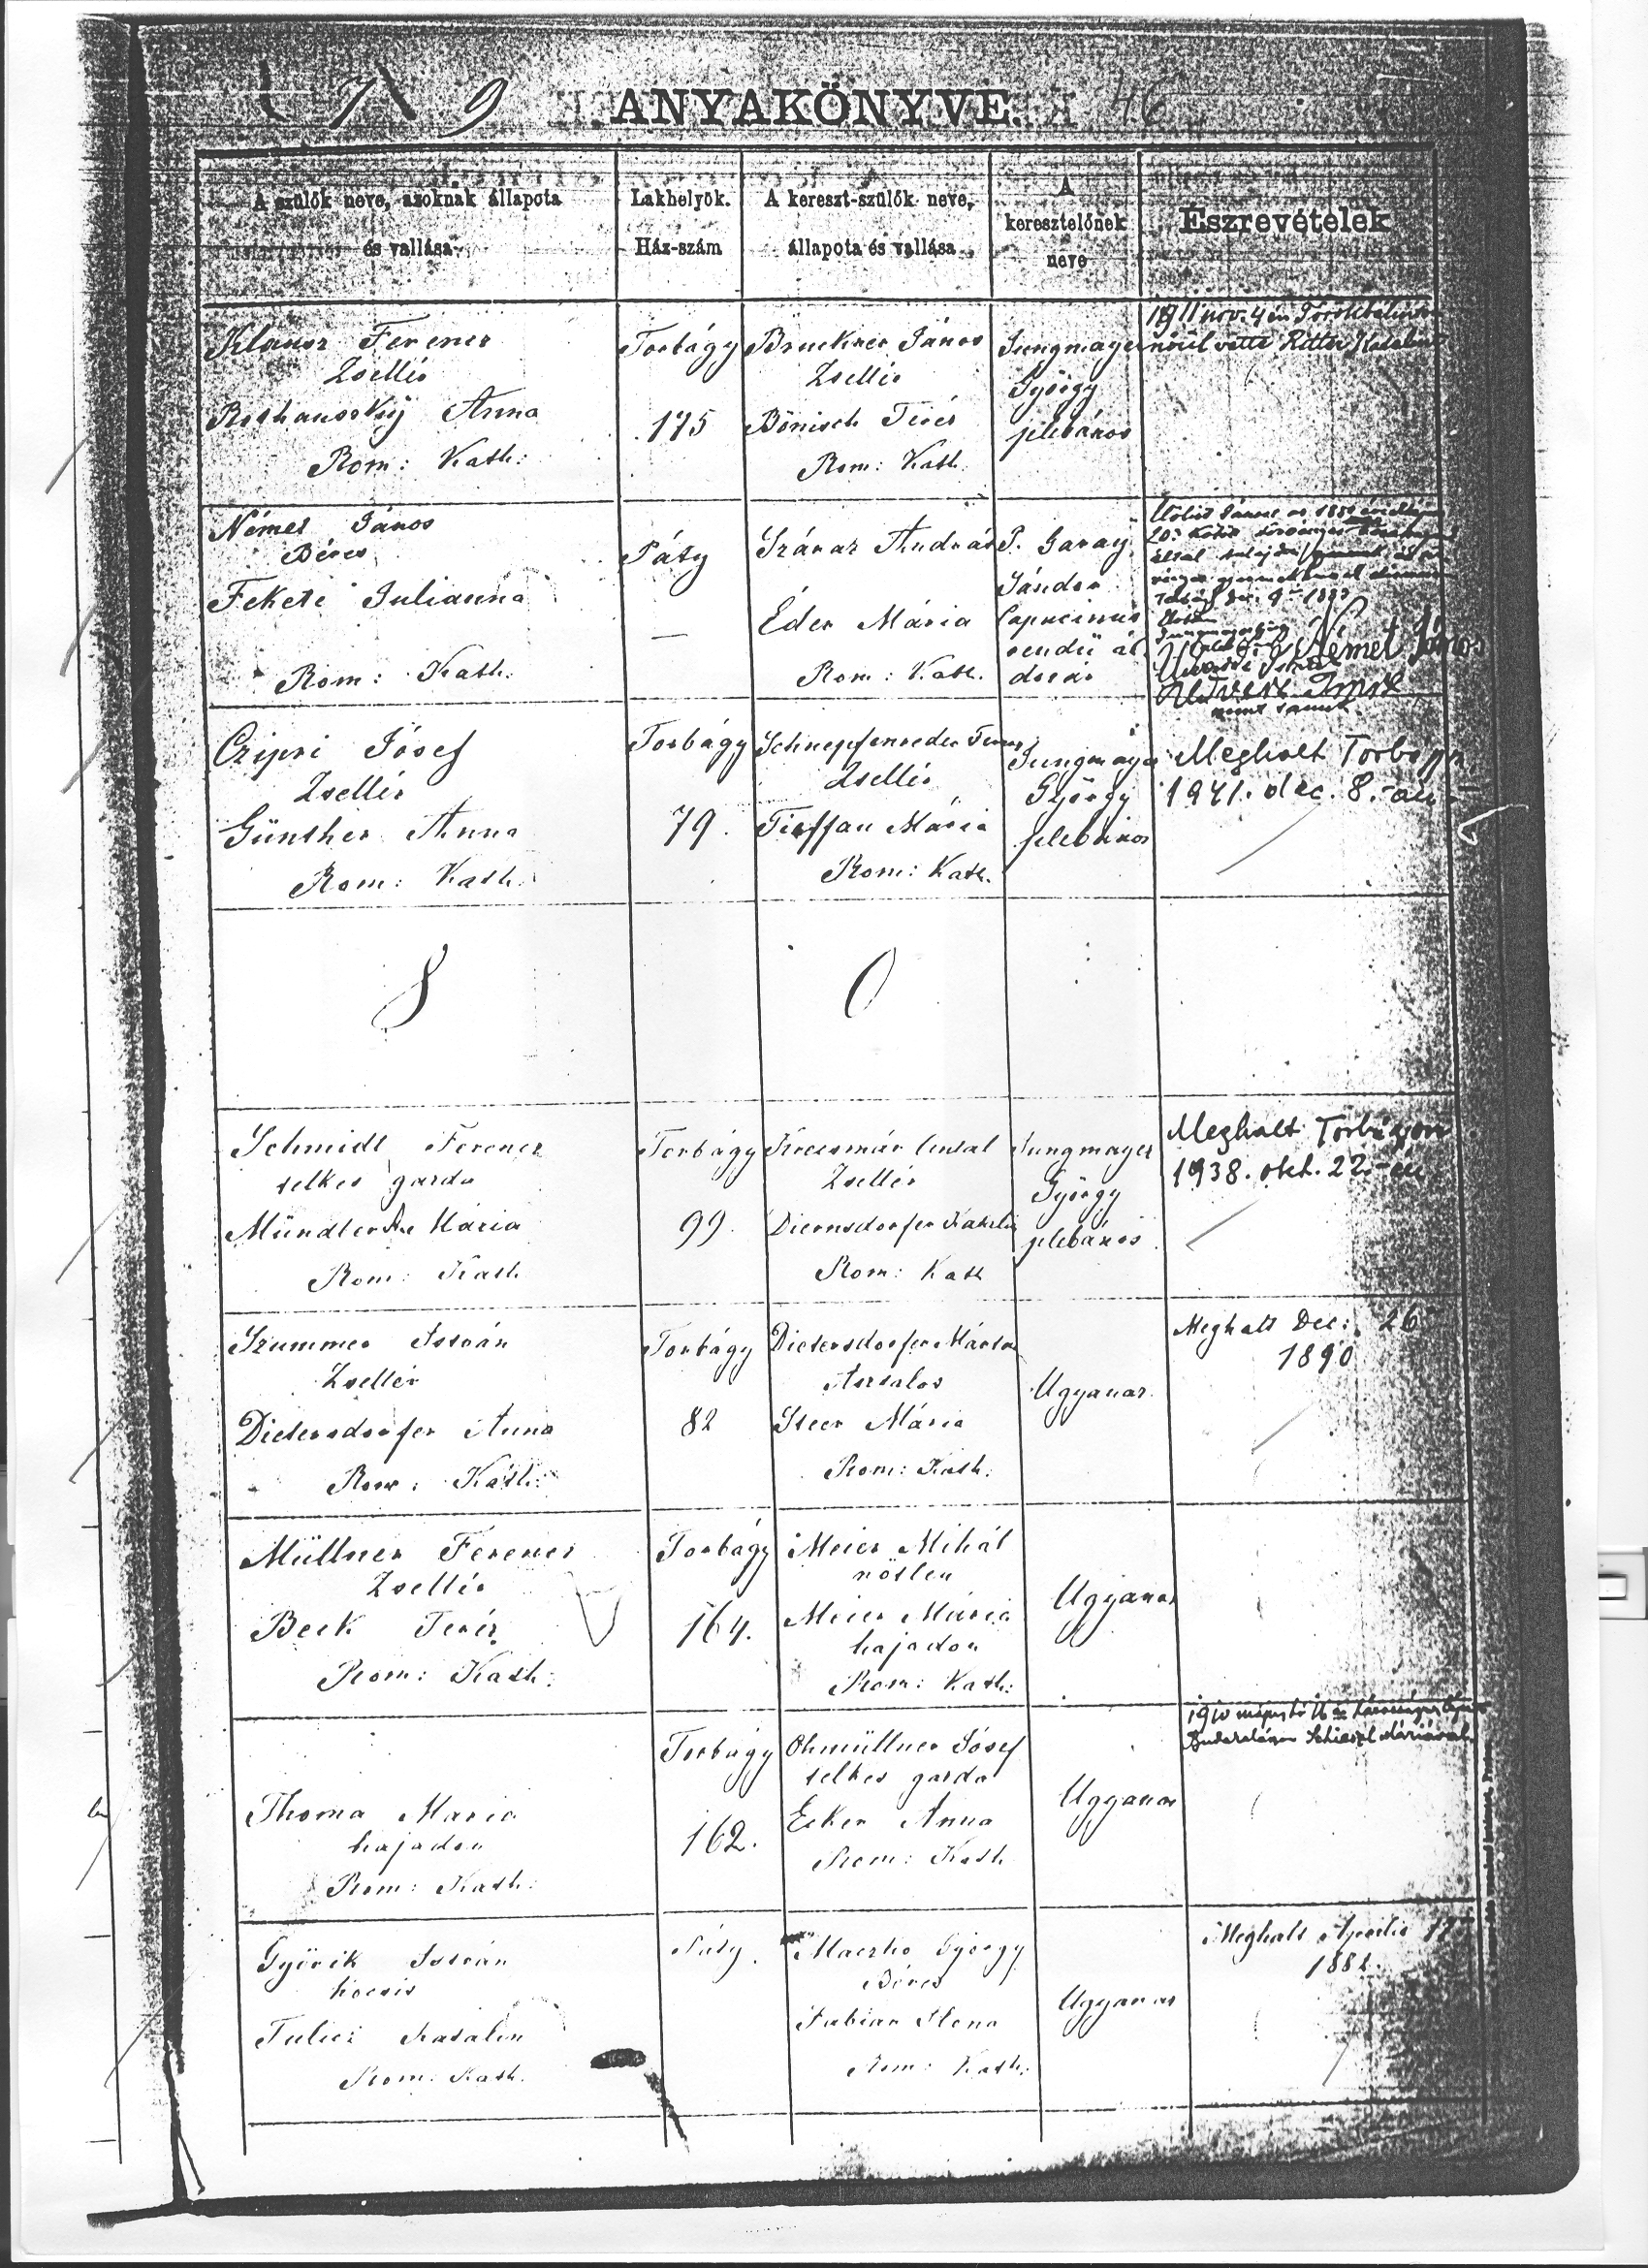 7 9 ANYAKÖNYVE. 46
A szülők neve, azoknak állapota és vallása
Lakhelyök. Ház-szám
A kereszt-szülők neve, állapota és vallása
A keresztelőnek neve
Észrevételek
Klausz Ferencz
Zsellér
Anna
Rom: Kath:
Torbágy
175
Bruckner János
Zsellér
Bönisch Teréz
Rom: Kath.
Jungmayer
György
plebános
1911 nov. 4 én Törökbálinton
nőül vette Ritter Katalint
Német János
Béres
Fekete Julianna
Rom: Kath:
Páty
—
Száraz András
Éder Mária
Rom: Kath.
P. Garay
Sándor
Capucinus
rendű ál
dozár
Német János
Imre
mint tanuk
Czipri József
Zsellér
Günther Anna
Rom: Kath.
Torbágy
79.
Zsellér
Mária
Rom: Kath.
Jungmayer
György
plebános
Meghalt Torbágyon
1941. dec. 8.-án
Schmidt Ferencz
telkes gazda
Mária
Rom: Kath
Torbágy
99.
Krecsmár Antal
Zsellér
Diernsdorfer Katalin
Rom: Kath
Jungmayer
György
plebános
Meghalt Torbágyon
1938. okt. 22.-én
Szummer István
Zsellér
Dietersdorfer Anna
Rom: Kath:
Torbágy
82
Dietersdorfer Márton
Asztalos
Steer Mária
Rom: Kath:
Ugyanaz
Meghalt Dec: 26
1890
Müllner Ferencz
Zsellér
Beck Teréz
Rom: Kath:
Torbágy
164.
Meier Mihál
nőtlen
Meier Mária
hajadon
Rom: Kath:
Ugyanaz
Thoma Maria
hajadon
Rom: Kath:
Torbágy
162.
Ohmüllner József
telkes gazda
Ecker Anna
Rom: Kath
Ugyanaz
1910
Schieszl Máriával
Győrik István
kocsis
Katalin
Rom: Kath.
Páty.
Maczko György
Béres
Fabian Ilona
Rom: Kath:
Ugyanaz
Meghalt Aprilis 17
1882.